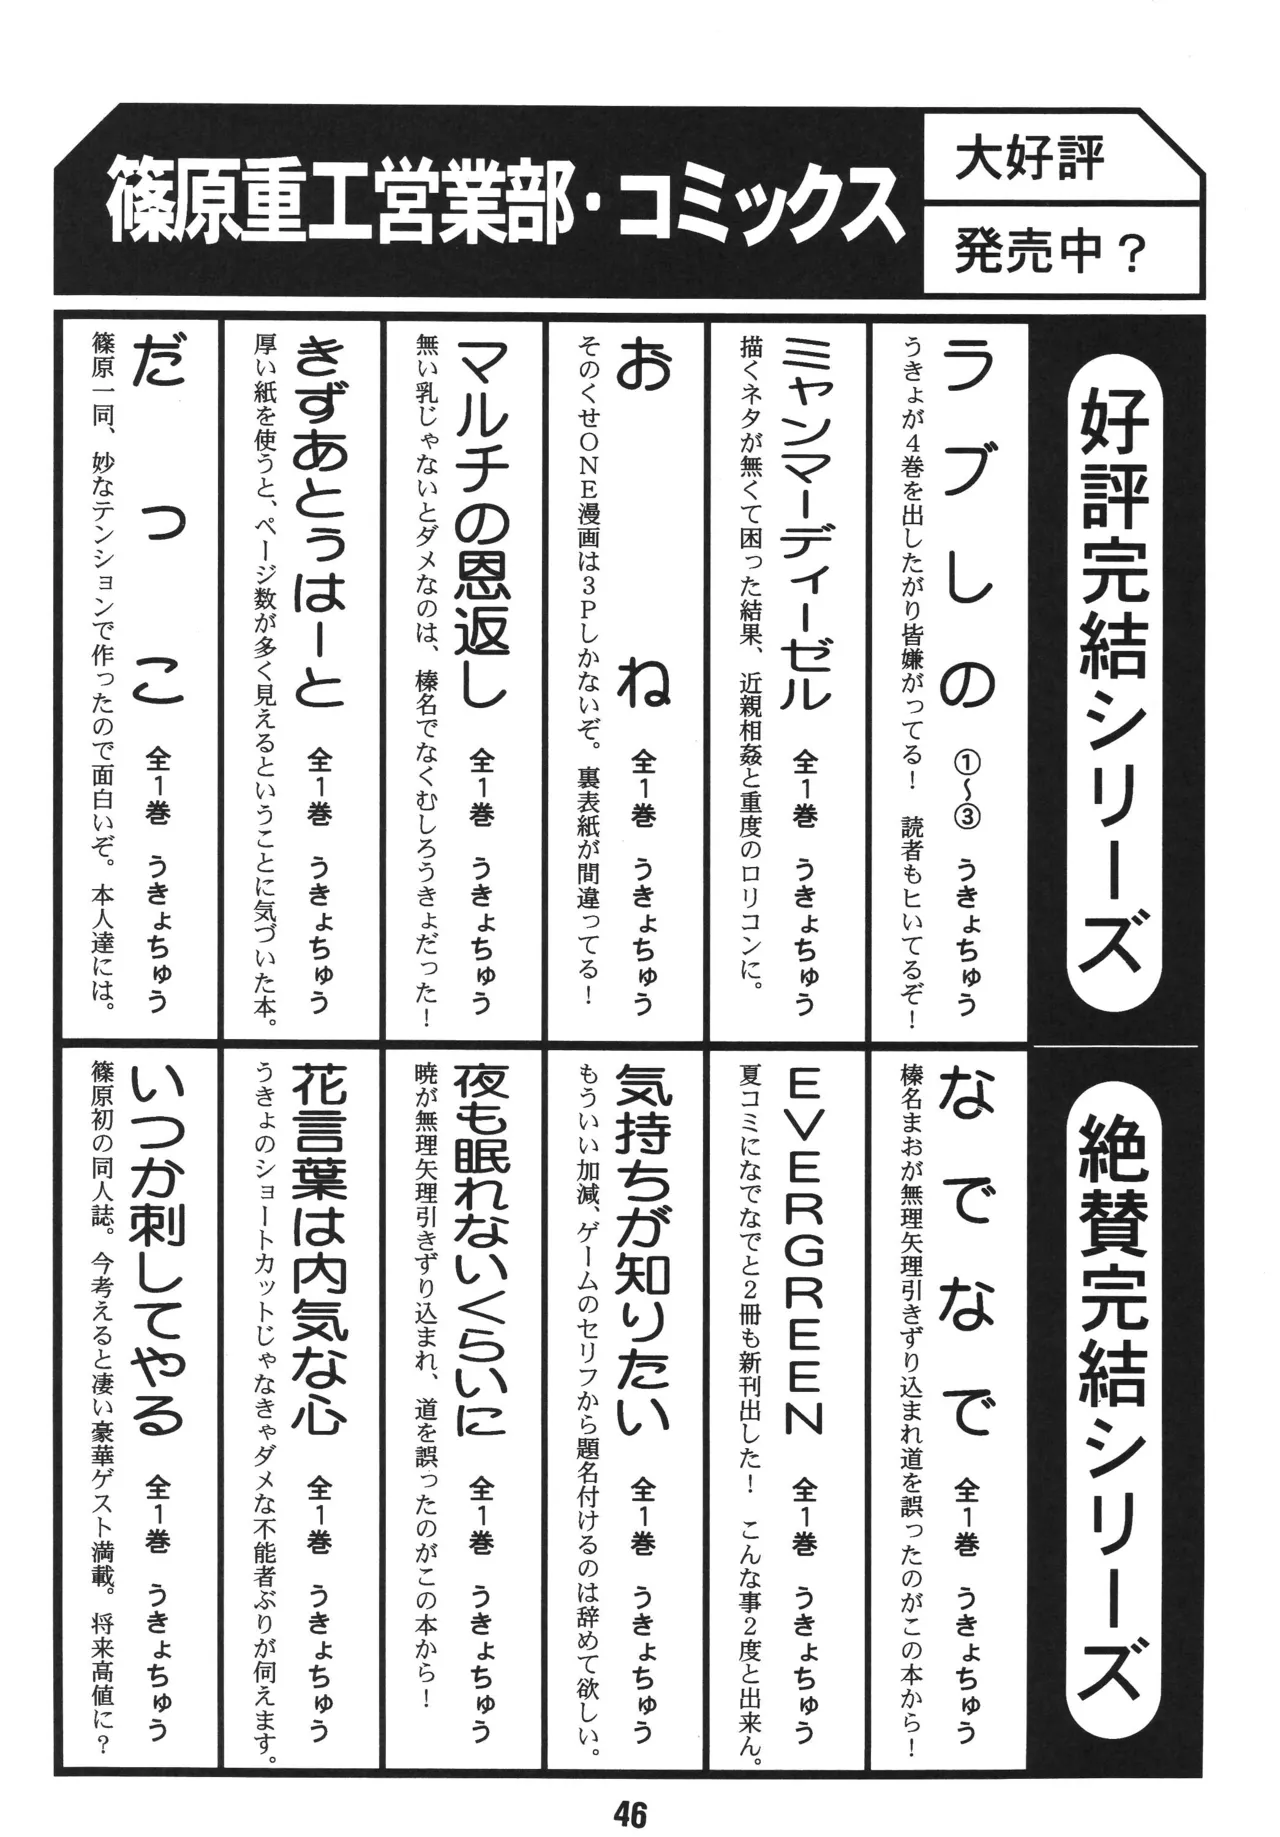 篠原重工営業部・コミックス
大好評
発売中？
好評完結シリーズ
ラブしの ①〜③ うきょちゅう
うきょが４巻を出したがり皆嫌がってる！　読者もヒいてるぞ！
ミャンマーディーゼル 全１巻 うきょちゅう
描くネタが無くて困った結果、近親相姦と重度のロリコンに。
おね 全１巻 うきょちゅう
そのくせＯＮＥ漫画は３Ｐしかないぞ。裏表紙が間違ってる！
マルチの恩返し 全１巻 うきょちゅう
無い乳じゃないとダメなのは、榛名でなくむしろうきょだった！
きずあとぅはーと 全１巻 うきょちゅう
厚い紙を使うと、ページ数が多く見えるということに気づいた本。
だっこ 全１巻 うきょちゅう
篠原一同、妙なテンションで作ったので面白いぞ。本人達には。
絶賛完結シリーズ
なでなで 全１巻 うきょちゅう
榛名まおが無理矢理引きずり込まれ道を誤ったのがこの本から！
ＥＶＥＲＧＲＥＥＮ 全１巻 うきょちゅう
夏コミになでなでと２冊も新刊出した！　こんな事２度と出来ん。
気持ちが知りたい 全１巻 うきょちゅう
もういい加減、ゲームのセリフから題名付けるのは辞めて欲しい。
夜も眠れないくらいに 全１巻 うきょちゅう
暁が無理矢理引きずり込まれ、道を誤ったのがこの本から！
花言葉は内気な心 全１巻 うきょちゅう
うきょのショートカットじゃなきゃダメな不能者ぶりが伺えます。
いつか刺してやる 全１巻 うきょちゅう
篠原初の同人誌。今考えると凄い豪華ゲスト満載。将来高値に？
46